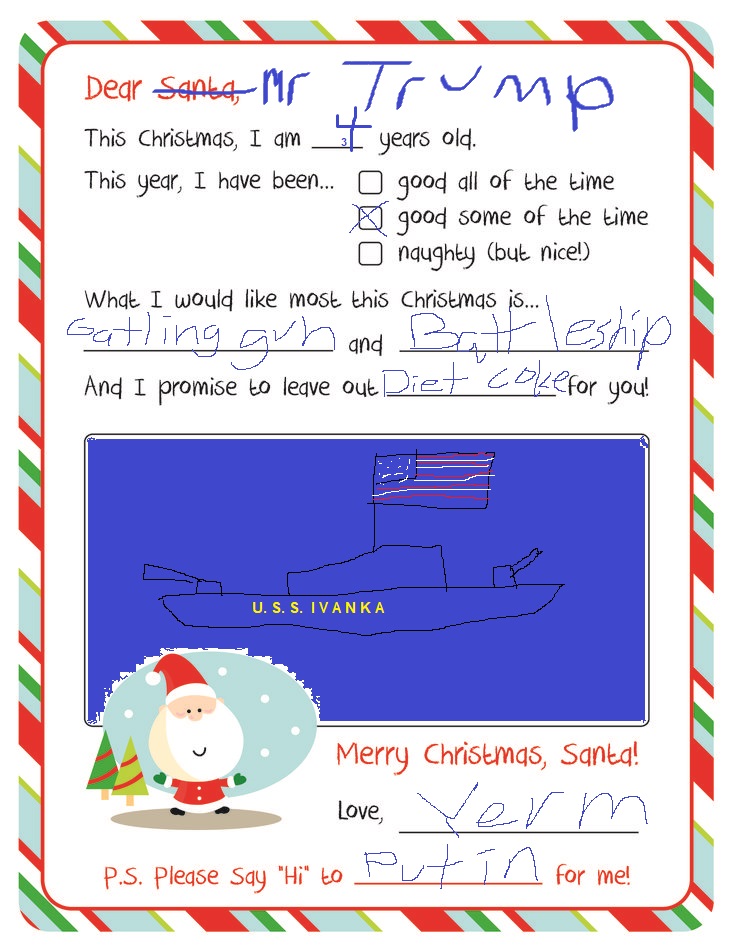 Dear Santa, Mr Trump
This Christmas, I am 4 3 years old.
This year, I have been... good all of the time
good some of the time
naughty (but nice!)
What I would like most this Christmas is...
Gatling gun and Battleship
And I promise to leave out Diet coke for you!
U.S.S. IVANKA
Merry Christmas, Santa!
Love, Verm
P.S. Please Say "Hi" to Putin for me!